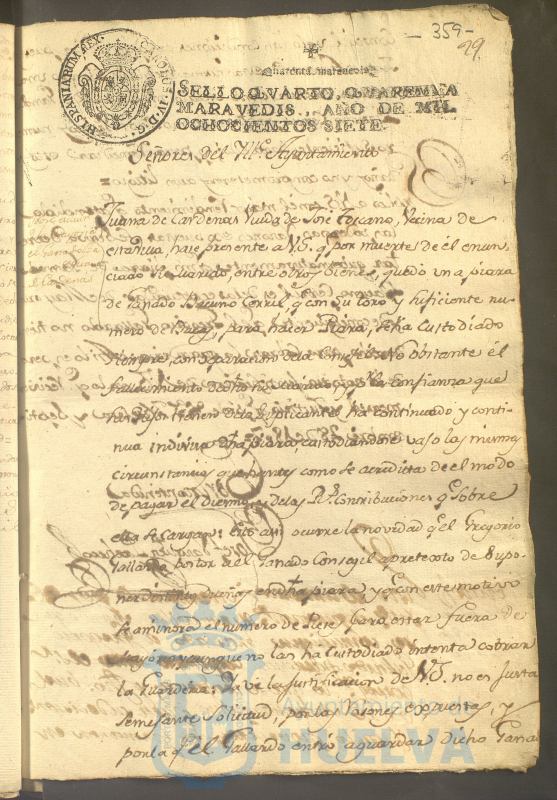 - 359 -
29
HISPANIARUM REX CAROLUS IV D.G.
Quarenta maravedis
SELLO QVARTO, QVARENTA
MARAVEDIS, AÑO DE MIL
OCHOCIENTOS SIETE.
Señores del Ille. Ayuntamiento
Juana de Cardenas Viuda de Jose Toscano, Vecina de
esta Villa, hace presente a VS. q. por muerte de el enun-
ciado su marido, entre otros bienes, quedó una piara
de Ganado Bacuno Cerril, q. con su toro, y suficiente nu-
mero de para hacer Piara, se ha Custodiado
siempre, con separacion de la Consejil. No obstante él
fallecimiento de dho su marido, y la confianza que
han tenido de la Suplicante, ha continuado y conti-
nua indivisa dha piara, custodiandose vaso las mismas
circunstancias que antes como se acredita de el modo
de pagar el Diezmo y de las Rs. Contribuciones q. sobre
ella se cargan: esto asi ocurre la novedad q. el Gregorio
Gallardo Pastor del Ganado Consegil apretexto de Supo-
ner distintos dueños en dha piara y q. con este motivo
se aminora el numero de Reses para estar fuera de
mayoria, y aunque no las ha Custodiado intenta cobrar
la Guarderia: Ve la justificacion de VS. no es justa
semejante solicitud, por las rasones expuestas, y
por la q. el Gallardo entró aguardar dicho Gana-
Ayuntamiento de
HUELVA